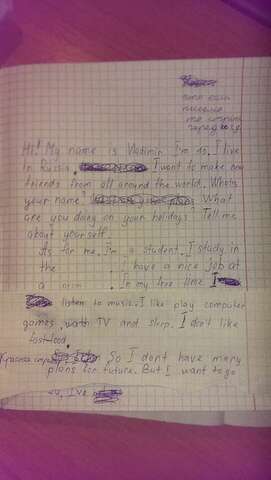 это если
письмо
то строчн
город
Hi! My name is Vladimir. I'm 20, I live
in Russia. I want to make new
friends from all around the world. Whats
your name? What
are you doing on your holidays? Tell me
about yourself.
As for me, I'm a student. I study in
the I have a nice job at
a In my free time I
listen to music. I like play computer
games, wath TV and sleep. I don't like
fast-food.
So I dont have many
plans for future. But I want to go